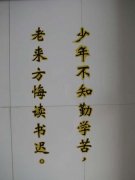 少年不知勤学苦，
老来方悔读书迟。